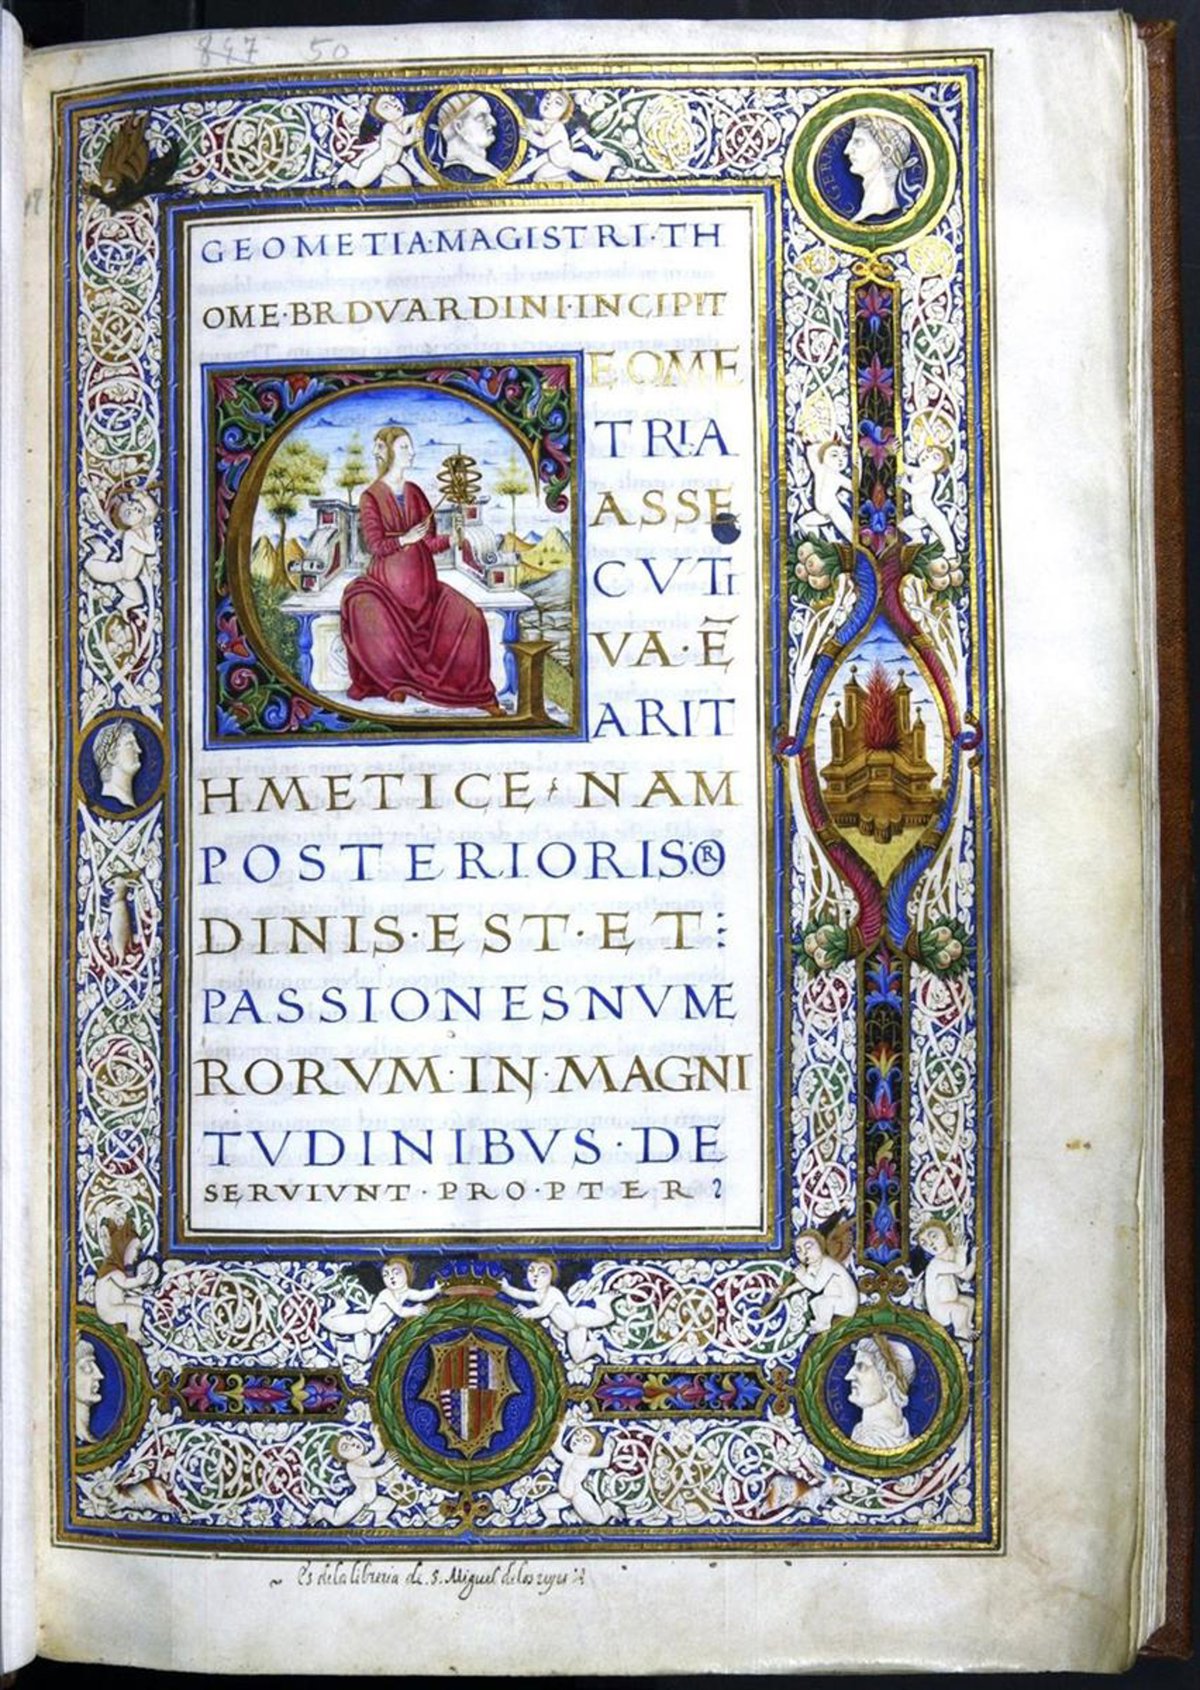 847 50
GEOMETIA·MAGISTRI·TH
OME·BRDVARDINI·INCIPIT
GEOME
TRIA
ASSE
CVTI
VA·Ē
ARIT
HMETICE; NAM
POSTERIORIS OR
DINIS·EST·ET:
PASSIONES NVME
RORVM·IN·MAGNI
TVDINIBVS·DE
SERVIVNT·PROPTER
Es de la libreria de S. Miguel de los reyes